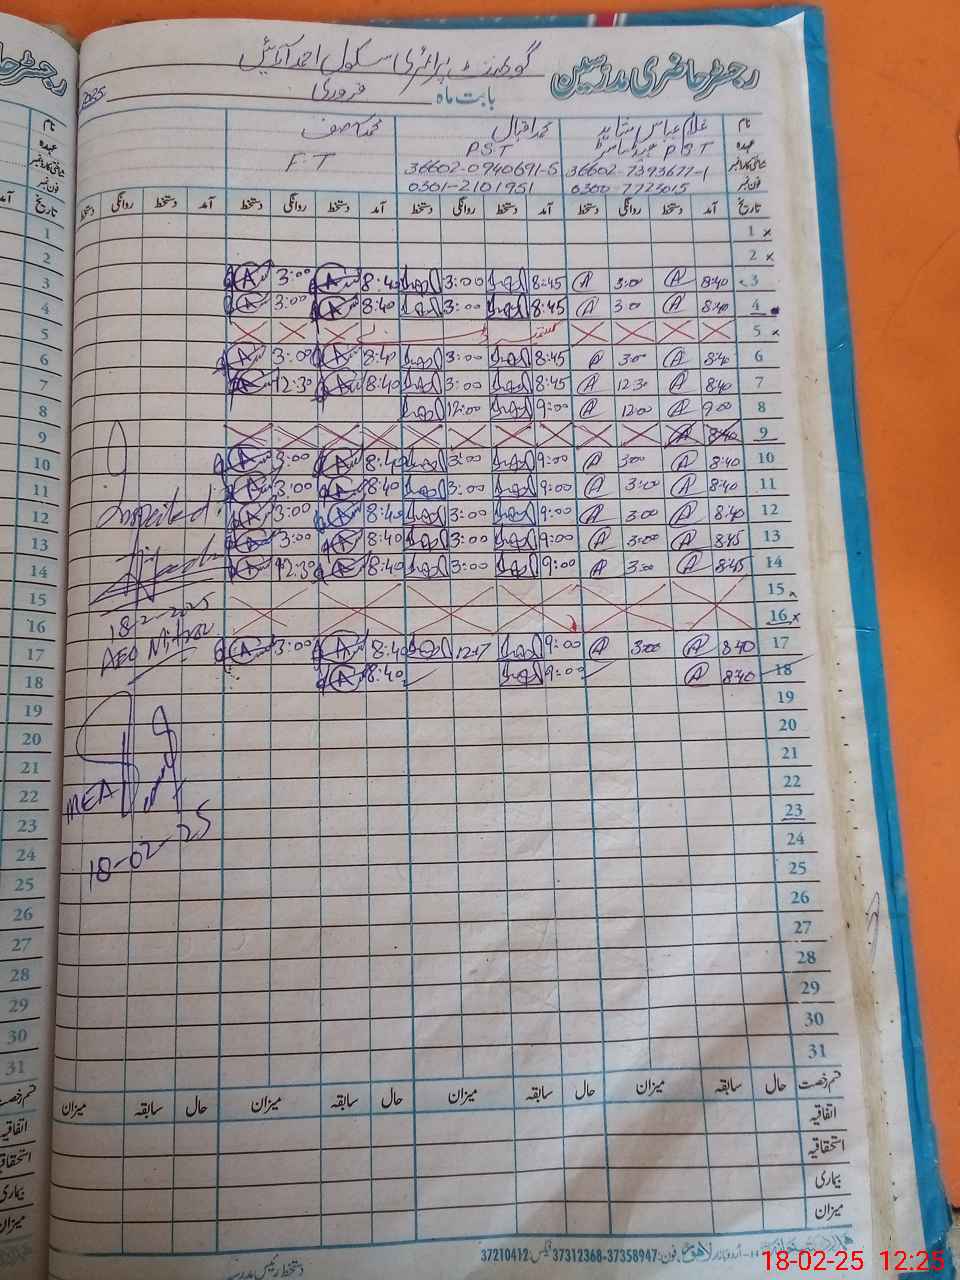 رجسٹر حاضری مدرسین گورنمنٹ پرائمری سکول احمد آرائیں
بابت ماہ فروری 2025
نام غلام عباس شاہد محمد اقبال محمد آصف
عہدہ PST PST F.T
شناختی کارڈ نمبر 36602-7393677-1 36602-0940691-5
فون نمبر 0300-7725015 0301-2101951
تاریخ آمد دستخط روانگی دستخط آمد دستخط روانگی دستخط آمد دستخط روانگی دستخط آمد دستخط روانگی دستخط
1 x
2 x
3 8:40 A 3:00 A 8:45 3:00 8:40 A 3:00 A
4 8:40 A 3:00 A 8:45 3:00 8:40 A 3:00 A
5 x
6 8:40 A 3:00 A 8:45 3:00 8:40 A 3:00 A
7 8:40 A 12:30 A 8:45 3:00 8:40 A 12:30 A
8 9:00 A 12:00 A 9:00 12:00
9 8:40 A
10 8:40 A 3:00 A 9:00 3:00 8:40 A 3:00 A
11 8:40 A 3:00 A 9:00 3:00 8:40 A 3:00 A
12 8:40 A 3:00 A 9:00 3:00 8:40 A 3:00 A
Inspected
13 8:45 A 3:00 A 9:00 3:00 8:40 A 3:00 A
14 8:45 A 3:00 A 9:00 3:00 8:40 A 12:30 A
15
16 x
18-2-2025
17 8:40 A 3:00 A 9:00 12:17 8:40 A 3:00 A
AEO
18 8:40 A 9:00 8:40 A
19
20
21
22
MEA
23
24
18-02-25
25
26
27
28
29
30
31
قسم رخصت حال سابقہ میزان حال سابقہ میزان حال سابقہ میزان حال سابقہ میزان
اتفاقیہ
استحقاقیہ
بیماری
میزان
اردو بازار لاہور فون: 37312368-37358947 فیکس: 37210412
دستخط رئیس مدرسہ
18-02-25 12:25